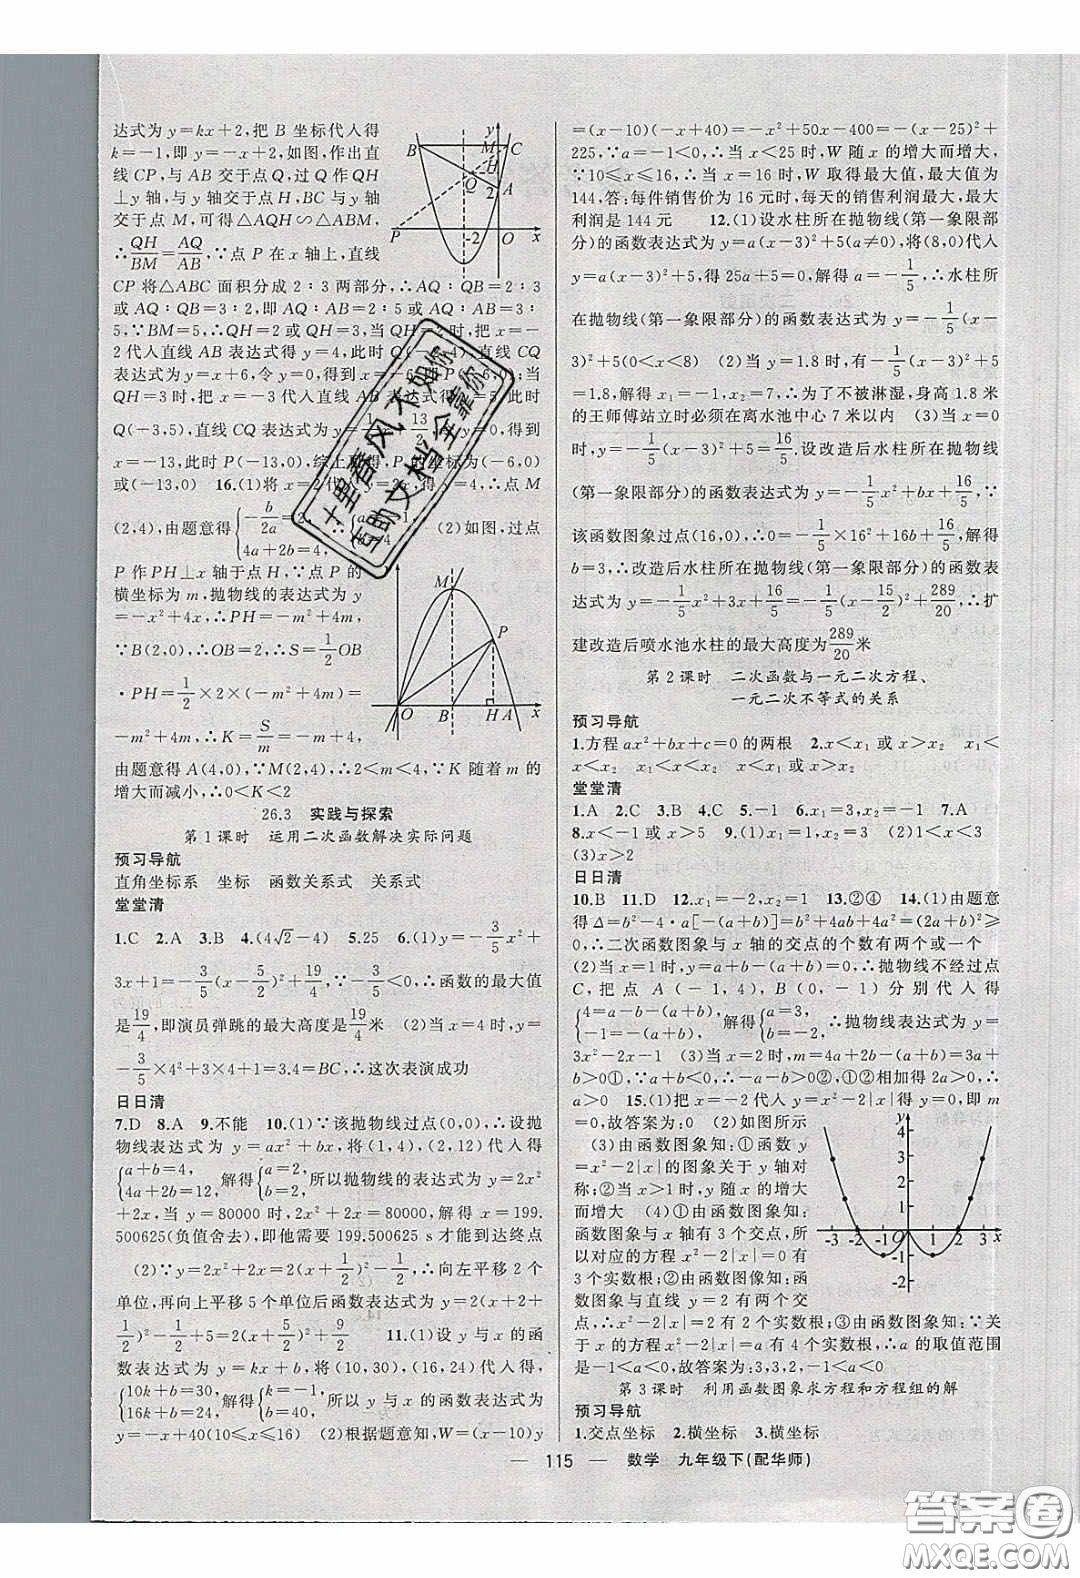 达式为 y=kx+2,把 B 坐标代人得
k=-1,即 y=-x+2,如图,作出直
线 CP,与 AB 交于点 Q,过 Q 作 QH
⊥y 轴,与 y 轴交于点 H,BC 与 y 轴
交于点 M,可得△AQH∽△ABM,
∴QH/BM=AQ/AB,∵点 P 在 x 轴上,直线
CP 将△ABC 面积分成 2∶3 两部分,∴AQ∶QB=2∶3
或 AQ∶QB=3∶2,即 AQ∶AB=2∶5 或 AQ∶AB=3∶
5,∵BM=5,∴QH=2或QH=3,当QH=2时,把 x=-
2代人直线 AB 表达式得 y=4,此时 Q(-2,4),直线 CQ
表达式为 y=x+6,令 y=0,得到 x=-6,
QH=3时,把 x=-3代人直线 AB 表达式得 y=5,此时
Q(-3,5),直线CQ表达式为 y=1/2x+13/2,令 y=0,得到
x=-13,此时 P(-13,0),综上所述,P的坐标为(-6,0)
或(-13,0) 16.(1)将 x=2代人 y=2x,得 y=4,∴点 M
(2,4),由题意得{-b/2a=2, 4a+2b=4, ∴{a=-1, b=4 (2)如图,过点
P 作 PH⊥x 轴于点 H,∵点 P 的
横坐标为 m,抛物线的表达式为 y
=-x²+4x,∴PH=-m²+4m,
∵B(2,0),∴OB=2,∴S=1/2OB
·PH=1/2×2×(-m²+4m)=
-m²+4m,∴K=S/m=-m+4,
由题意得 A(4,0),∵M(2,4),∴2<m<4,∵K 随着 m 的
增大而减小,∴0<K<2
26.3 实践与探索
第1课时 运用二次函数解决实际问题
预习导航
直角坐标系 坐标 函数关系式 关系式
堂堂清
1.C 2.A 3.B 4.(4√2-4) 5.25 6.(1)y=-3/5x²+
3x+1=-3/5(x-5/2)²+19/4,∵-3/5<0,∴函数的最大值
是19/4,即演员弹跳的最大高度是19/4米 (2)当 x=4 时,y=
-3/5×4²+3×4+1=3.4=BC,∴这次表演成功
日日清
7.D 8.A 9.不能 10.(1)∵该抛物线过点(0,0),∴设抛
物线表达式为 y=ax²+bx,将(1,4),(2,12)代人得
{a+b=4, 4a+2b=12, 解得{a=2, b=2, 所以抛物线的表达式为 y=2x²
+2x,当 y=80000 时,2x²+2x=80000,解得 x=199.
500625(负值舍去),即他需要 199.500625 s才能到达终点
(2)∵y=2x²+2x=2(x+1/2)²-1/2,∴向左平移2个
单位,再向上平移5个单位后函数表达式为 y=2(x+2+
1/2)²-1/2+5=2(x+5/2)²+9/2 11.(1)设 y 与 x 的函
数表达式为 y=kx+b,将(10,30),(16,24)代人得,
{10k+b=30, 16k+b=24, 解得{k=-1, b=40, 所以 y 与 x 的函数表达式为
y=-x+40(10≤x≤16) (2)根据题意知,W=(x-10)y
=(x-10)(-x+40)=-x²+50x-400=-(x-25)²+
225,∵a=-1<0,∴当 x<25 时,W 随 x 的增大而增大,
∵10≤x≤16,∴当 x=16 时,W 取得最大值,最大值为
144,答:每件销售价为16元时,每天的销售利润最大,最大
利润是 144 元 12.(1)设水柱所在抛物线(第一象限部
分)的函数表达式为 y=a(x-3)²+5(a≠0),将(8,0)代人
y=a(x-3)²+5,得 25a+5=0,解得 a=-1/5,∴水柱所
在抛物线(第一象限部分)的函数表达式为 y=-1/5(x-
3)²+5(0<x<8) (2)当 y=1.8时,有-1/5(x-3)²+5
=1.8,解得 x₁=-1,x₂=7,∴为了不被淋湿,身高1.8米
的王师傅站立时必须在离水池中心7米以内 (3)当 x=0
时,y=-1/5(x-3)²+5=16/5.设改造后水柱所在抛物线
(第一象限部分)的函数表达式为 y=-1/5x²+bx+16/5,∵
该函数图象过点(16,0),∴0=-1/5×16²+16b+16/5,解得
b=3,∴改造后水柱所在抛物线(第一象限部分)的函数表
达式为 y=-1/5x²+3x+16/5=-1/5(x-15/2)²+289/20,∴扩
建改造后喷水池水柱的最大高度为289/20米
第2课时 二次函数与一元二次方程、
一元二次不等式的关系
预习导航
1.方程 ax²+bx+c=0 的两根 2.x<x₁ 或 x>x₂ x₁<
x<x₂ x₁<x<x₂ x<x₁ 或 x>x₂
堂堂清
1.A 2.C 3.B 4.C 5.-1 6.x₁=3,x₂=-1 7.A
8.x<-1 或 x>5 9.(1)x₁=1,x₂=3 (2)1<x<3
(3)x>2
日日清
10.B 11.D 12.x₁=-2,x₂=1 13.②④ 14.(1)由题意
得 Δ=b²-4·a[-(a+b)]=b²+4ab+4a²=(2a+b)²≥
0,∴二次函数图象与 x 轴的交点的个数有两个或一个
(2)当 x=1 时,y=a+b-(a+b)=0,∴抛物线不经过点
C,把点 A(-1,4),B(0,-1)分别代人得
{4=a-b-(a+b), -1=-(a+b), 解得{a=3, b=-2, ∴抛物线表达式为 y=
3x²-2x-1 (3)当 x=2时,m=4a+2b-(a+b)=3a+
b>0①,∵a+b<0,∴-a-b>0②,①+②得 2a>0,∴
a>0 15.(1)把 x=-2 代人 y=x²-2|x|得 y=0,即 m
=0,故答案为:0 (2)如图所示
(3)由函数图象知:①函数 y
=x²-2|x|的图象关于 y 轴对
称;②当 x>1 时,y 随 x 的增大
而增大 (4)①由函数图象知:
函数图象与 x 轴有3个交点,所
以对应的方程 x²-2|x|=0 有
3个实数根;②由函数图像知:函
数图象与直线 y=2 有两个交
点,∴x²-2|x|=2有2个实数根;③由函数图象知:∵关
于 x 的方程 x²-2|x|=a 有4个实数根,∴a 的取值范围
是-1<a<0,故答案为:3 3 2 -1<a<0
第3课时 利用函数图象求方程和方程组的解
预习导航
1.交点坐标 2.横坐标 3.横坐标
— 115 — 数学 九年级下(配华师)
十里春风不如你
互助文档全靠你
答案圈
MXQE.COM